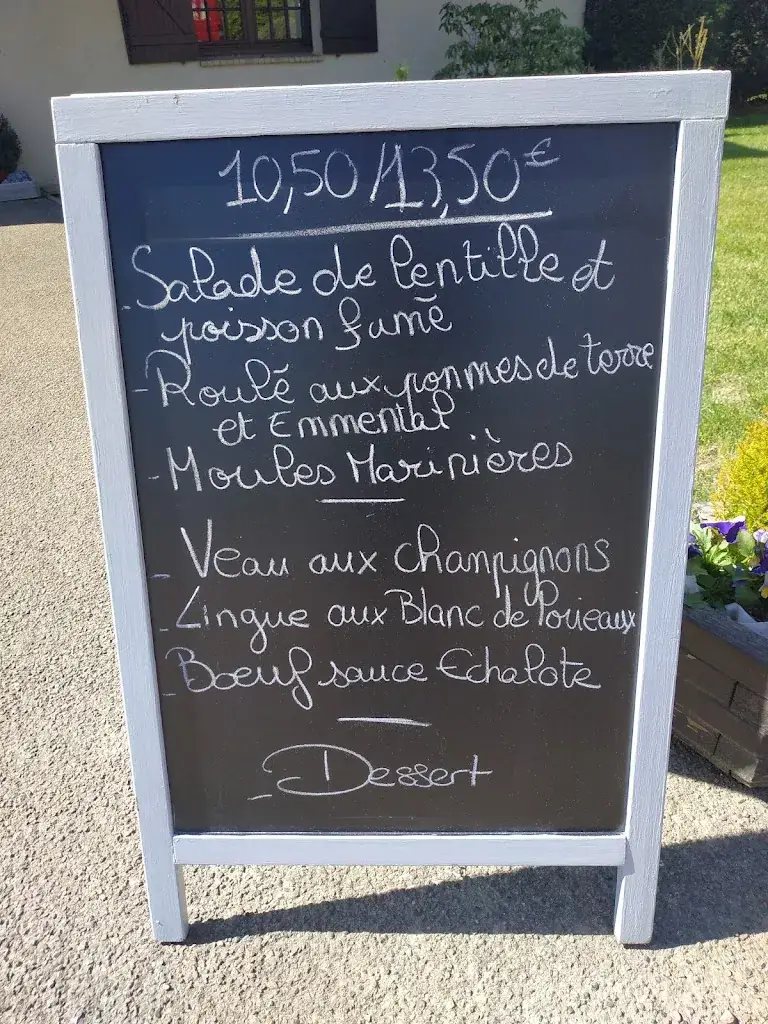 10,50/13,50€
- Salade de lentille et
poisson fumé
- Roulé aux pommes de terre
et Emmental
- Moules Marinières
- Veau aux champignons
- Lingue aux Blanc de Poireaux
- Boeuf sauce Echalote
- Dessert